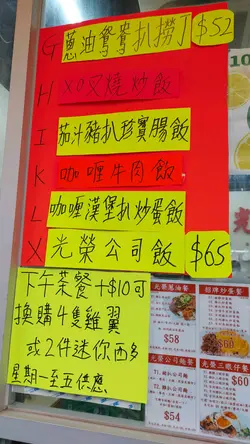 G 蔥油鴛鴦扒撈丁 $52
H XO叉燒炒飯
I 茄汁豬扒珍寶腸飯
K 咖喱牛肉飯
L 咖喱漢堡扒炒蛋飯
X 光榮公司飯 $65
下午茶餐+$10可
換購4隻雞翼
或2件迷你西多
星期一至五供應
光榮蔥油餐
$58
招牌炒蛋餐
$60
光榮公司麵餐
$54
光榮三眼仔餐
$60
10